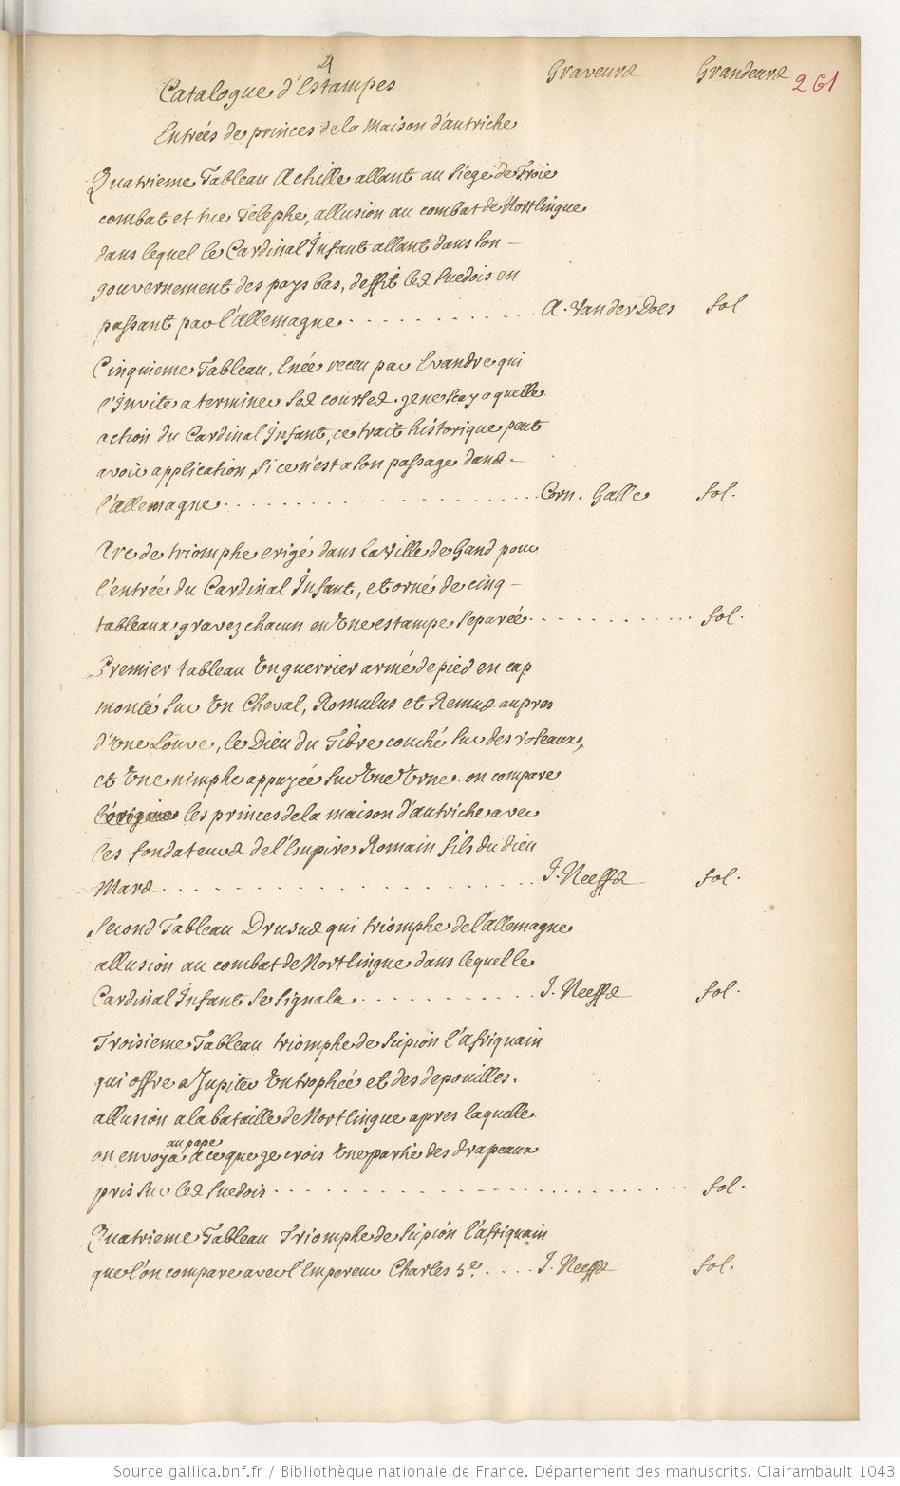 4
Catalogue d'Estampes Graveurs Grandeurs 261
Entrées de princes de la Maison d'autriche
Quatrieme Tableau Achille allant au siege de Troie
combat et tue Telephe, allusion au combat de Nortlingue
dans lequel le Cardinal Infant allant dans son
gouvernement des pays bas, deffit les suedois en
passant par l'allemagne. A. Van der Does fol
Cinquieme Tableau, Enée receu par Evandre qui
l'Invite a terminer ses courses. je ne scay a quelle
action du Cardinal Infant, ce trait historique peut
avoir application, si ce n'est a son passage dans
l'allemagne Corn. Galle fol.
Arc de triomphe erigé dans la Ville de Gand pour
l'entrée du Cardinal Infant, et orné de cinq
tableaux gravez chacun en Une estampe separée fol.
Premier tableau Un guerrier armé de pied en cap
monté sur Un Cheval, Romulus et Remus aupres
d'Une Louve, le Dieu du Tibre couché sur des roseaux,
et Une nimphe appuyée sur Une Urne. on compare
l'origine les princes de la maison d'autriche avec
les fondateurs de l'Empire Romain fils du dieu
Mars J. Neeffs fol.
Second Tableau Drusus qui triomphe de l'allemagne
allusion au combat de Nortlingue dans lequel le
Cardinal Infant se signala J. Neeffs fol.
Troisieme Tableau triomphe de Scipion l'afriquain
qui offre a Jupiter Un trophée et des depouilles.
allusion a la bataille de Nortlingue apres laquelle
au pape
on envoya a ce que je crois Une partie des drapeaux
pris sur les suedois fol.
Quatrieme Tableau Triomphe de Scipion l'afriquain
que l'on compare avec l'Empereur Charles 5e. J. Neeffs fol.
Source gallica.bnf.fr / Bibliothèque nationale de France. Département des manuscrits. Clairambault 1043